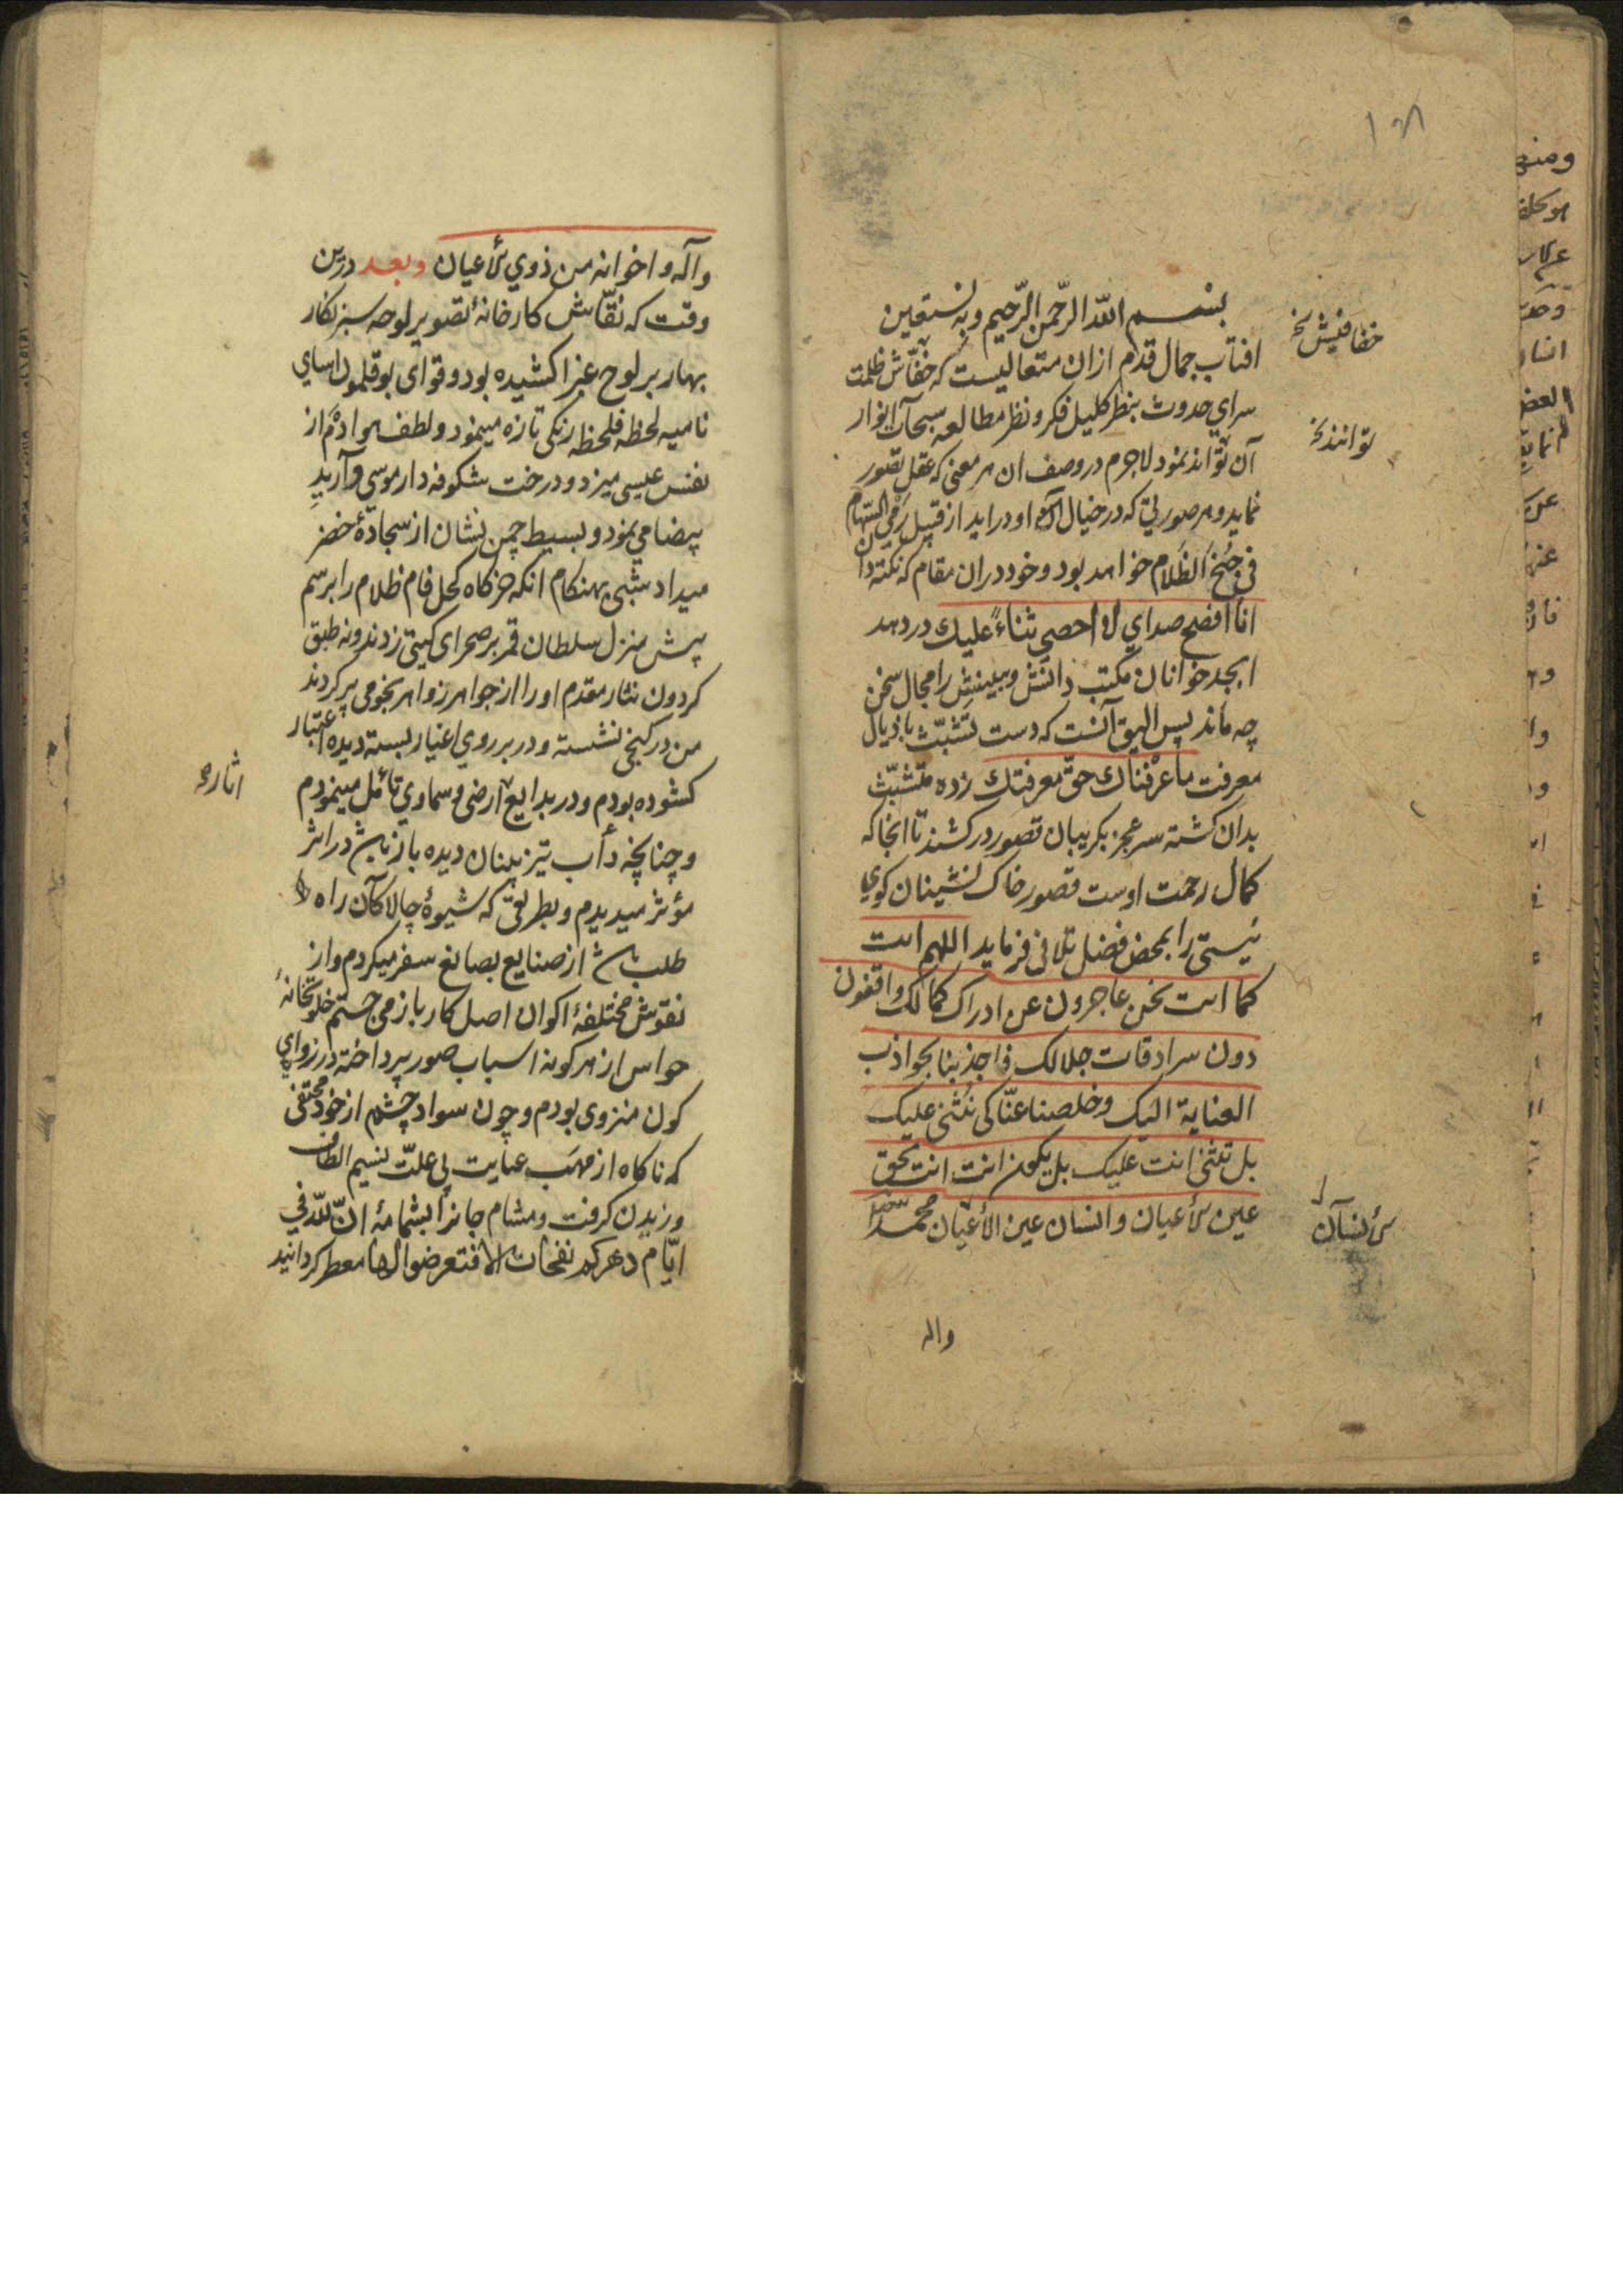 بسم الله الرحمن الرحیم وبه نستعین
افتاب جمال قدم ازان متعالیست که خفّاش ظلمت
سرای حدوث بنظر کلیل فکر و نظر مطالعه سبحات انوار
آن تواند نمود لاجرم در وصف ان هر معنی که عقل تصور
نماید و هر صورتی که در خیال آید از قبیل رمی السّهام
فی جنح الظّلام خواهد بود و خود دران مقام که نکته دان
انا افصح صدای لا احصی ثناءً علیك در دهد
ابجد خوانان مکتب دانش و بینش را مجال سخن
چه ماند پس الیق آنست که دست تشبّث باذیال
معرفت ما عرفناك حقّ معرفتك زده متشبّث
بدان کشته سر عجز بکریبان قصور درکشند تا انجا که
کمال رحمت اوست قصور خاک نشینان کوی
نیستی را بمحض فضل تلافی فرماید اللهم انت
کما انت نحن عاجزون عن ادراک کمالک واقفون
دون سرادقات جلالک فاجذبنا بجواذب
العنایة الیک وخلصنا عنّا کی نثنی علیک
بل تثنی انت علیک بل یکون انت انت بحق
عین الأعیان وانسان عین الأعیان محمّد
واله
خفافیش نخ
توانند نخ
الأنسان
واله و اخوانه من ذوی الأعیان وبعد درین
وقت که نقّاش کارخانهٔ تصویر لوحه سبز نکار
بهار بر لوح غبرا کشیده بود و قوای بوقلمون اسای
نامیه لحظه فلحظه رنکی تازه مینمود و لطف هوا دم از
نفس عیسی میزد و درخت شکوفه دار موسی وار ید
بیضا می نمود و بسیط چمن نشان از سجادهٔ خضر
میداد شبی بهنکام انکه خرکاه کحل فام ظلام را برسم
پیش منزل سلطان قمر بر صحرای کیتی زدند و نه طبق
کردون نثار مقدم او را از جواهر زواهر نجومی پر کردند
من در کنجی نشسته و در بر روی اغیار بسته دیده اعتبار
کشوده بودم و در بدایع ارضی و سماوی تأمّل مینمودم
و چنانچه دأب تیزبینان دیده باز در اثر
مؤثر میدیدم و بطریقی که شیوهٔ چالاکان راه
طلب از صنایع بصانع سفر میکردم و از
نقوش مختلفهٔ اکوان اصل کار باز می جستم خلوتخانهٔ
حواس از هر کونه اسباب صور پرداخته در زوایای
کون منزوی بودم و چون سواد چشم از خود مختفی
که ناکاه از مهب عنایت بی علّت نسیم الطاف
وزیدن کرفت و مشام جانرا بشمامهٔ انّ لله فی
ایّام دهرکم نفحات الا فتعرضوا لها معطر کردانید